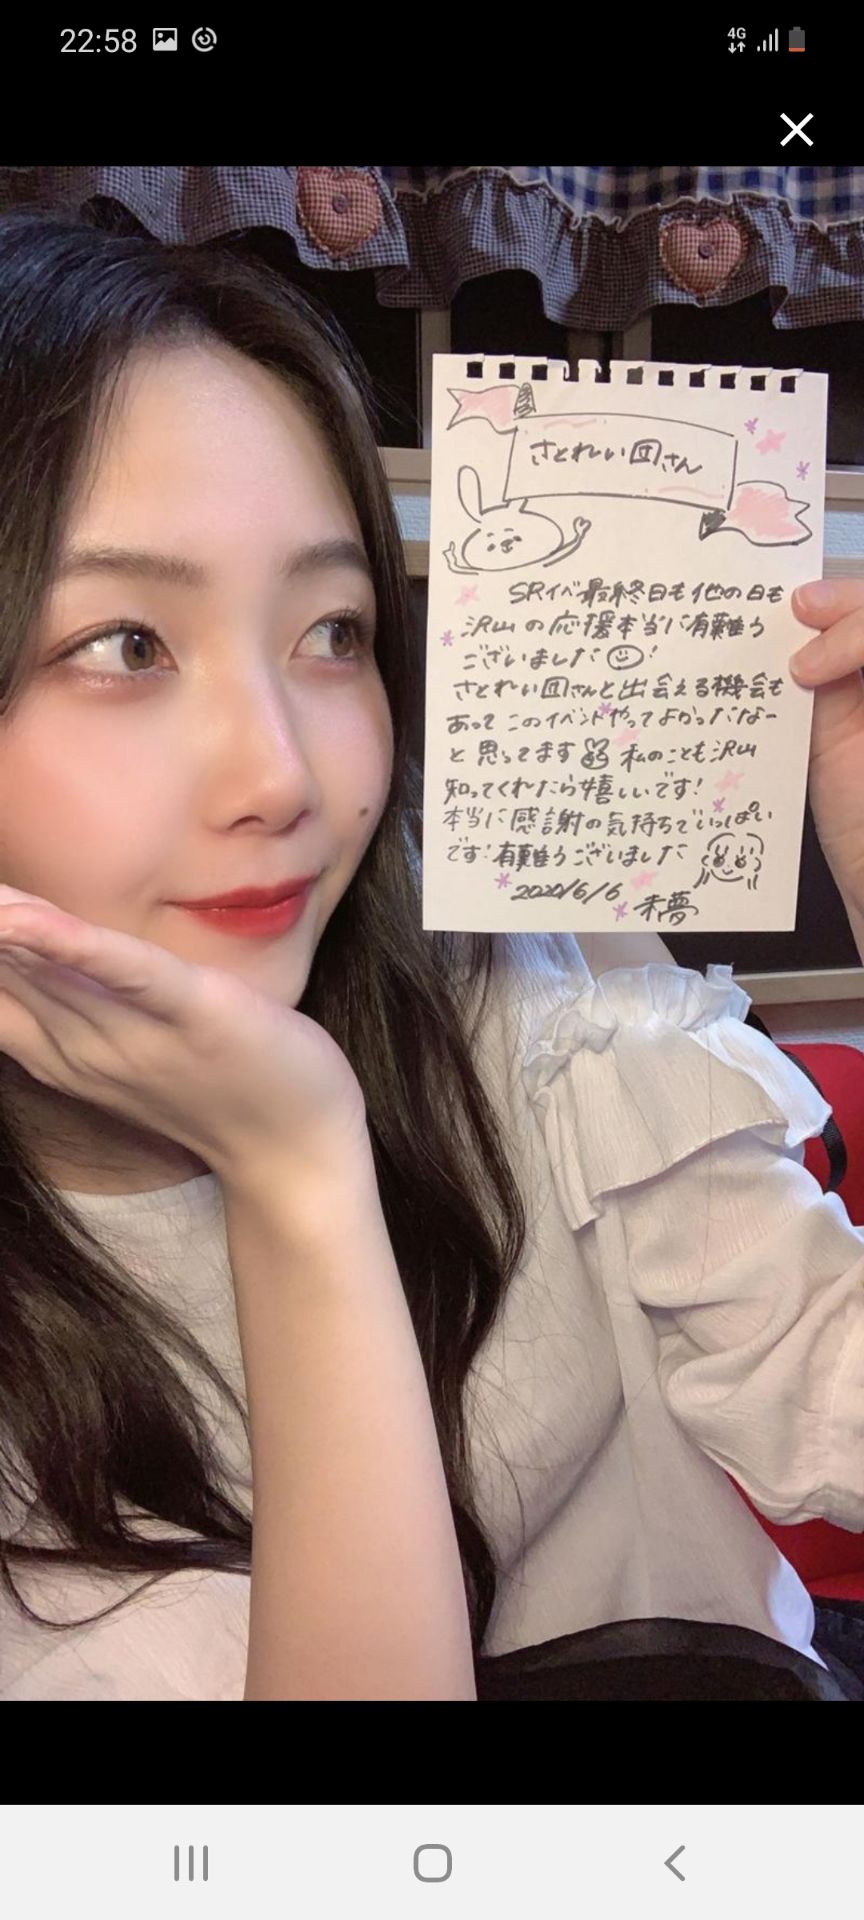 22:58
4G
さとれい団さん
SRイベ最終日も他の日も
沢山の応援本当に有難う
ございました!
さとれい団さんと出会える機会も
あって このイベントやってよかったなー
と思ってます 私のことも沢山
知ってくれたら嬉しいです!
本当に感謝の気持ちでいっぱい
です!有難うございました
2020/6/6
未夢